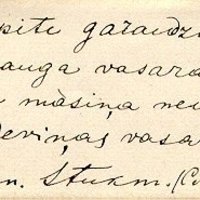 pite garaudz
auga vasara
màsiņa ne
Deviņas vasa
n. Stukm. (C